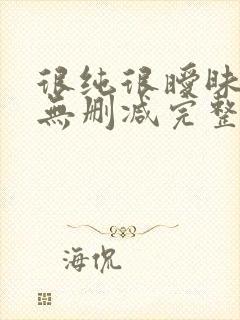 很纯很暧昧
無删减完整
海侃